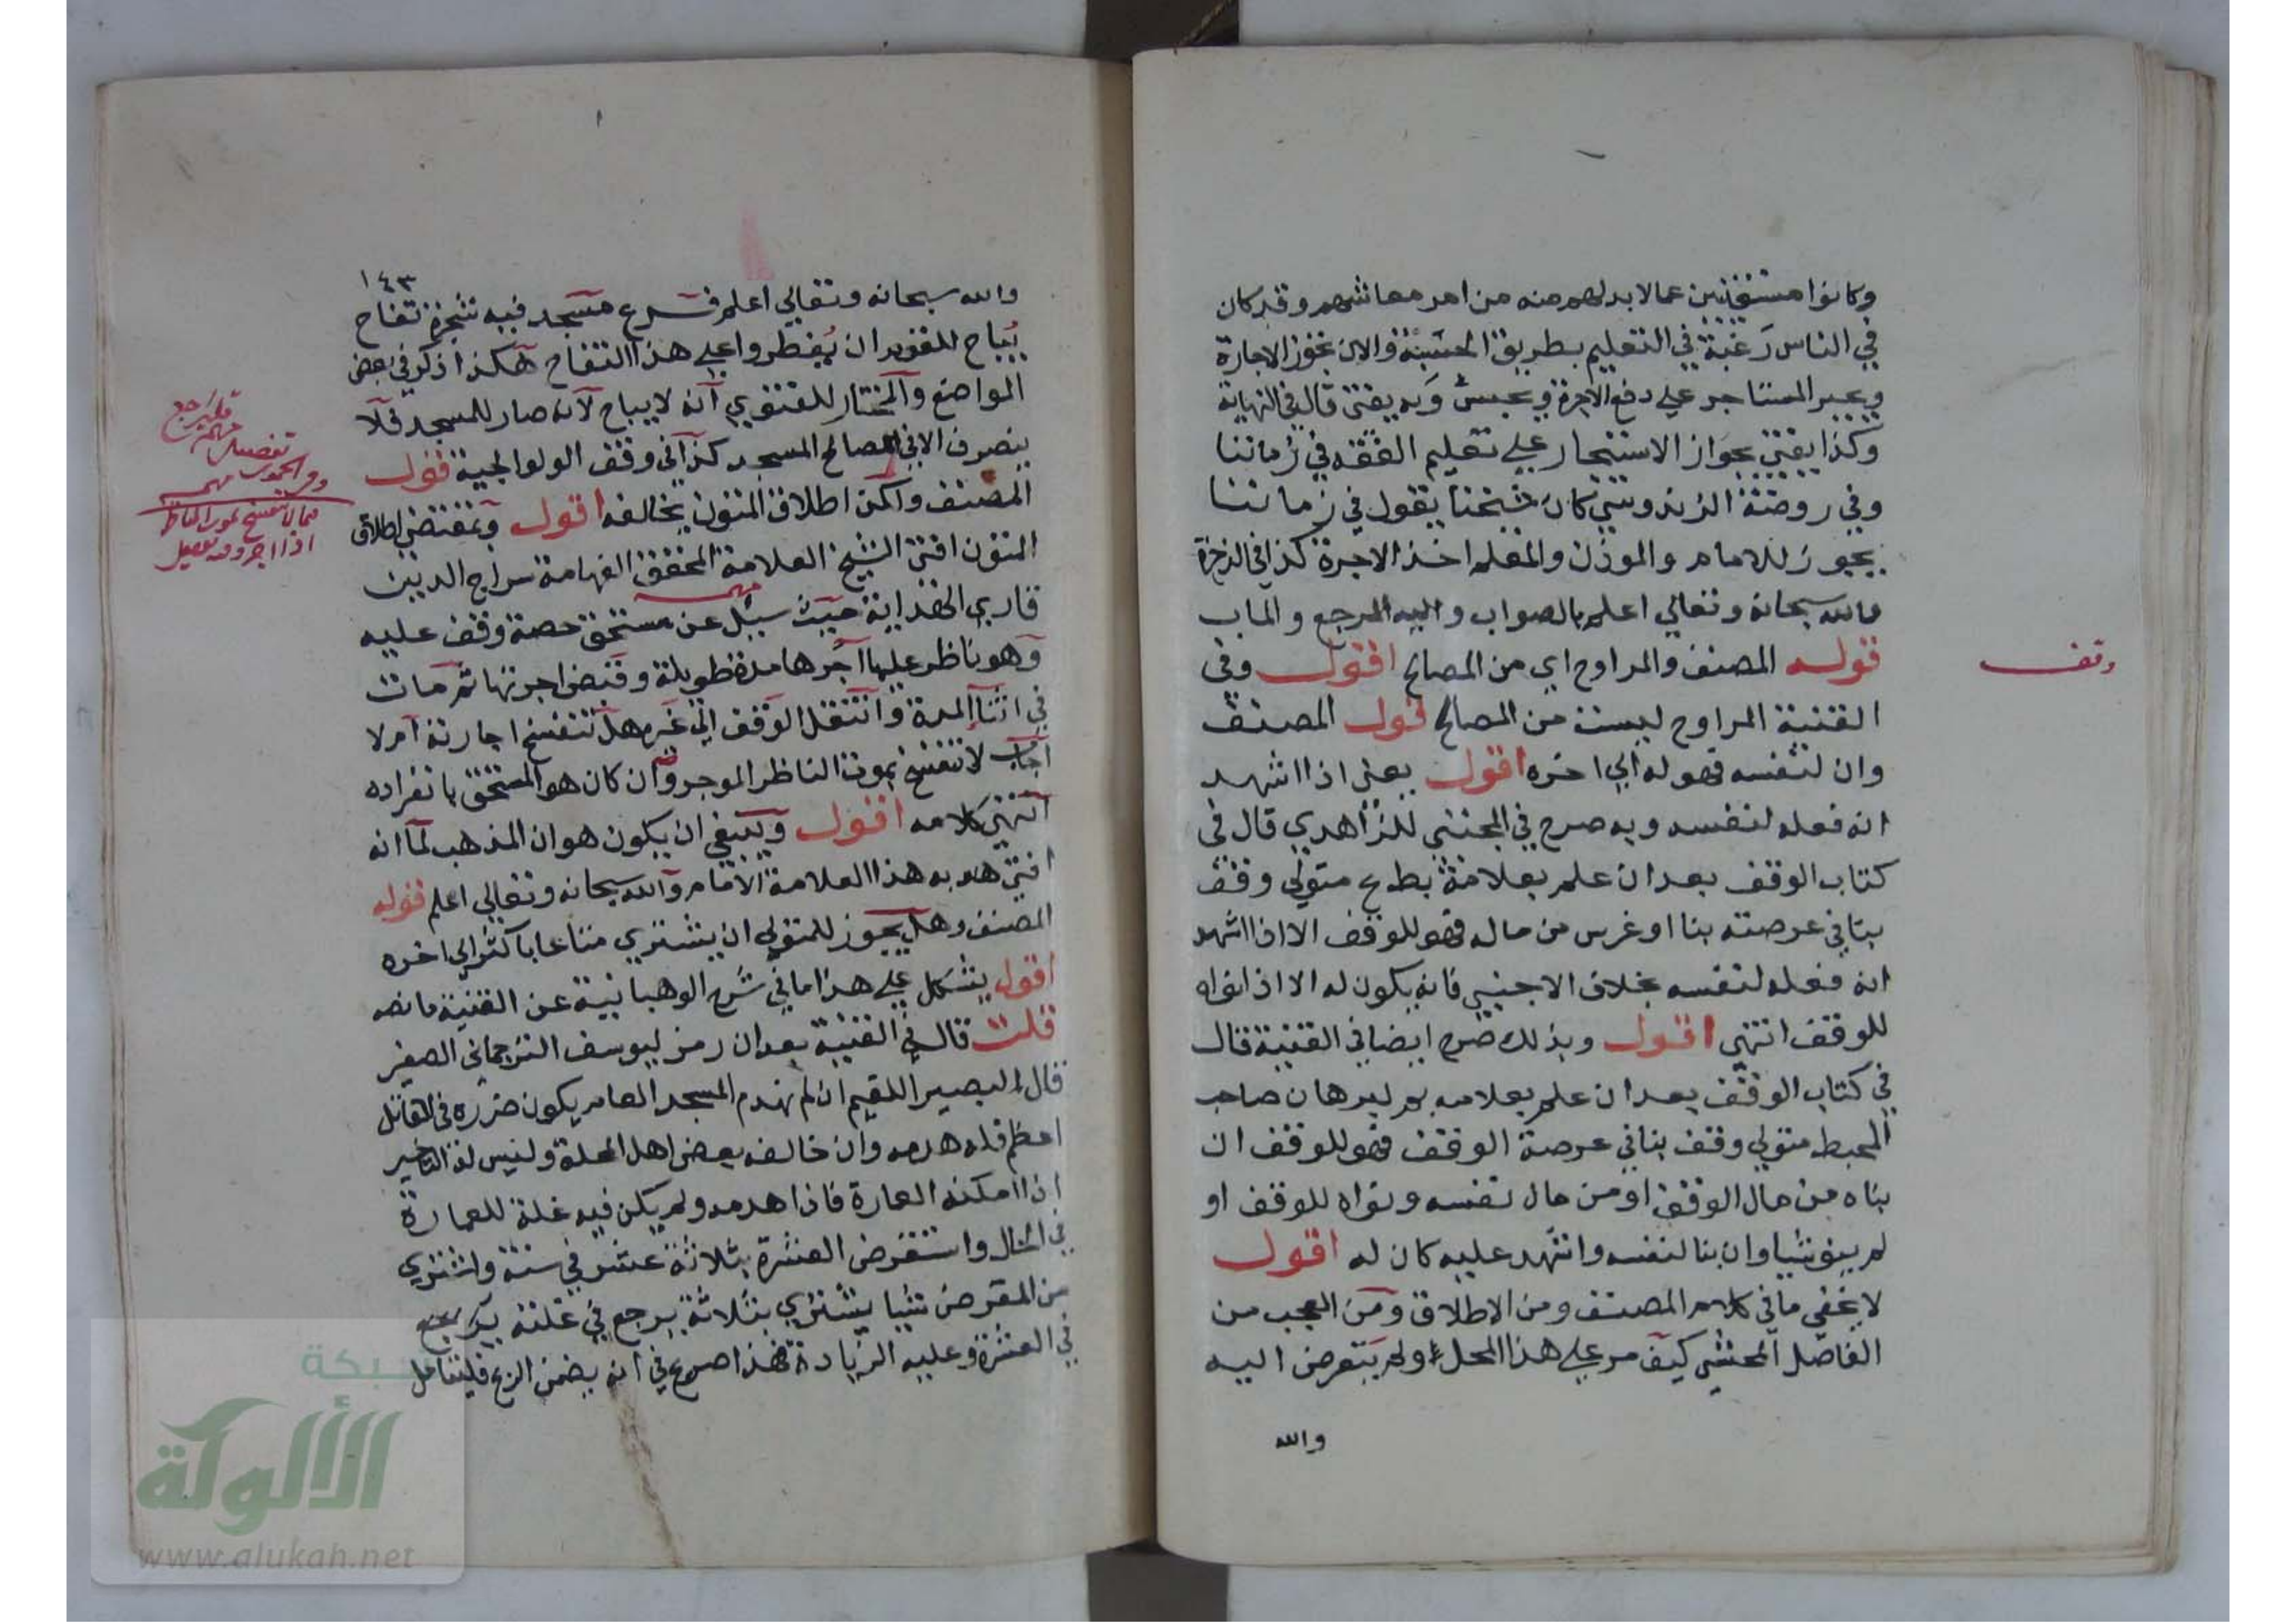 وكانوا مستغنين عمالا بد لهم منه من امر معاشهم وقد كان
في الناس رَغبة في التعليم بطريق الحسبة والان تجوز الاجارة
ويجبر المستاجر علي دفع الاجرة ويحبسُ وَبه يفتى قال في النهاية
وكذا يفتي بجَواز الاستئجار علي تعليم الفقه في زماننا
وفي روضة الزندوستي كان شيخنا يقول في زماننا
يجوز للامام والموذن والمعلم اخذ الاجرة كذا في الذخيرة
والله سبحانه وتعالي اعلم بالصواب واليه المرجع والماب
قوله المصنف والمراوح اي من المصالح اقول وفي
القنية المراوح ليست من المصالح قول المصنف
وان لنفسه فهو له الي اخره اقول يعني اذا اشهد
انه فعله لنفسه وبه صرح في المجتبي للزاهدي قال في
كتاب الوقف بعد ان علم بعلامة بط ع متولي وقف
بنا في عرصته بنا او غرس من ماله فهو للوقف الا اذا اشهد
انه فعله لنفسه بخلاف الاجنبي فانه يكون له الا اذا نواه
للوقف انتهي اقول وبذلك صرح ايضا في القنية قال
في كتاب الوقف بعد ان علم بعلامه بم لبرهان صاحب
المحيط متولي وقف بنا في عرصة الوقف فهو للوقف ان
بناه من مال الوقف او من مال نفسه ونواه للوقف او
لم ينو شيا وان بنا لنفسه واشهد عليه كان له اقول
لا يخفي ما في كلام المصنف ومن الاطلاق ومَن العجب من
الفاضل المحشي كيف مر علي هذا المحل ولم يتعرض اليه
والله
وقف
١٤٣
والله سبحانه وتعالي اعلم فرع مسجد فيه شجرة تفاح
يُباح للقوم ان يُفطروا علي هذا التفاح هكذا ذكر في بعض
المواضع والمختار للفتوي انه لا يباح لانه صار للمسجد فلا
ينصرف الا في لمصالح المسجد كذا في وقف الولوالجية قول
المصنف ولكن اطلاق المتون يخالفه اقول وبمقتضي اطلاق
المتون افتي الشيخ العلامة المحقق الفهامة سراج الدين
قاري الهداية حيث سيل عن مستحق حصة وقف عليه
وهو ناظر عليها اجرها مدة طويلة وقبض اجرتها ثم مات
في اثنا المدة وانتقل الوقف الي غيره هل تنفسخ اجارته ام لا
اجاب لا تنفسخ بموت الناظر الموجر وان كان هو المستحق بانفراده
انتهي كلامه اقول وينبغي ان يكون هو ان المذهب لما انه
افتي هو به هذا العلامة الامام والله سبحانه وتعالي اعلم قوله
المصنف وهل يجوز للمتولي ان يشتري متاعا باكثر الي اخره
اقول يشكل علي هذا ما في شرح الوهبانية عن القنية ما نصه
قلت قال في القنية بعد ان رمز ليوسف الترجماني الصغير
قال البصير اللقيم ان لم يهدم المسجد العامر يكون ضرره في القابل
اعظم فله هدمه وان خالفه بعض اهل المحلة وليس له التاخير
اذا امكنه العمارة فاذا هدمه ولم يكن فيه غلة للعمارة
في الحال واستقرض العشرة بثلاثة عشر في سنة واشتري
من المقرض شيا يشتري بثلاثة يرجع في غلته
في العشرة وعليه الزيادة فهذا صريح في انه يضمن الربح فليتامل
فليراجع
مهمة
تفصيل
مهم
مهم
فيما لا تنفسخ بموت الناظر
اذا اجر وفيه تفصيل
شبكة
الألوكة
www.alukah.net